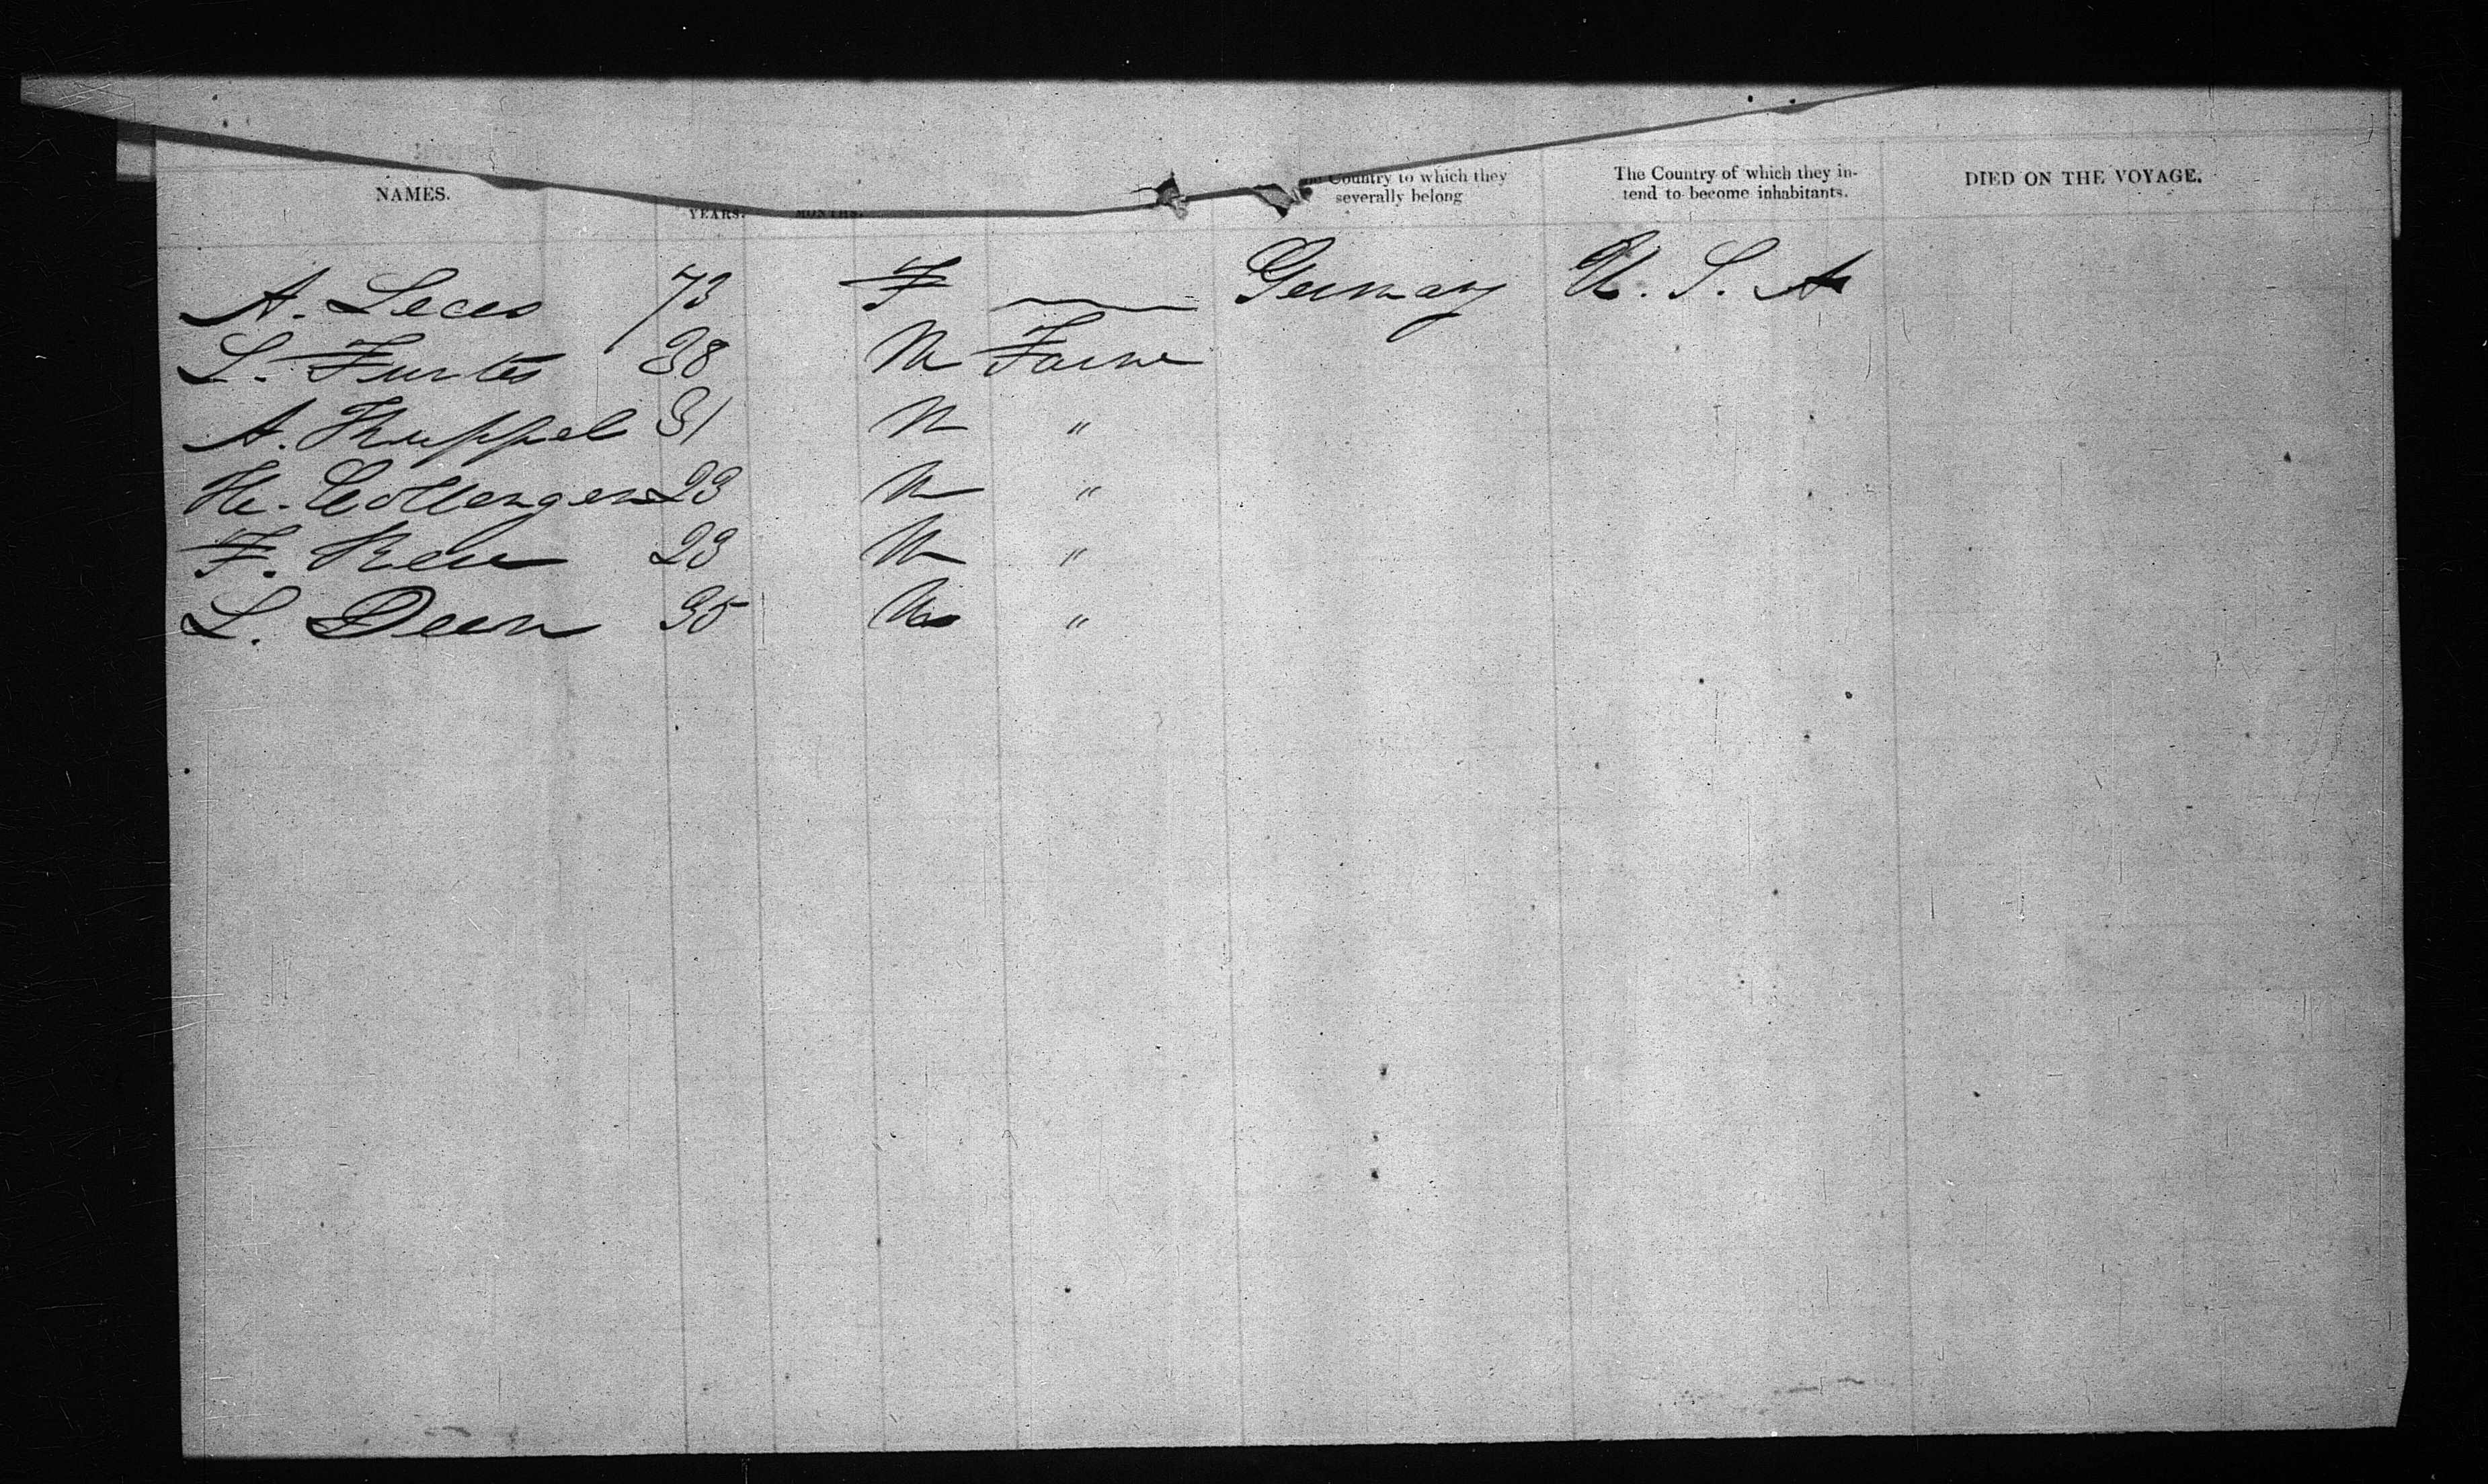 NAMES. YEARS. MONTHS. Country to which they severally belong The Country of which they in-tend to become inhabitants. DIED ON THE VOYAGE.
A. Leces 73 F — Germany U. S. A
L. Furtes 38 M Farme
A. Kuppel 31 M "
H. Collengen 23 M "
F. Reu 23 M "
L. Deen 35 M "